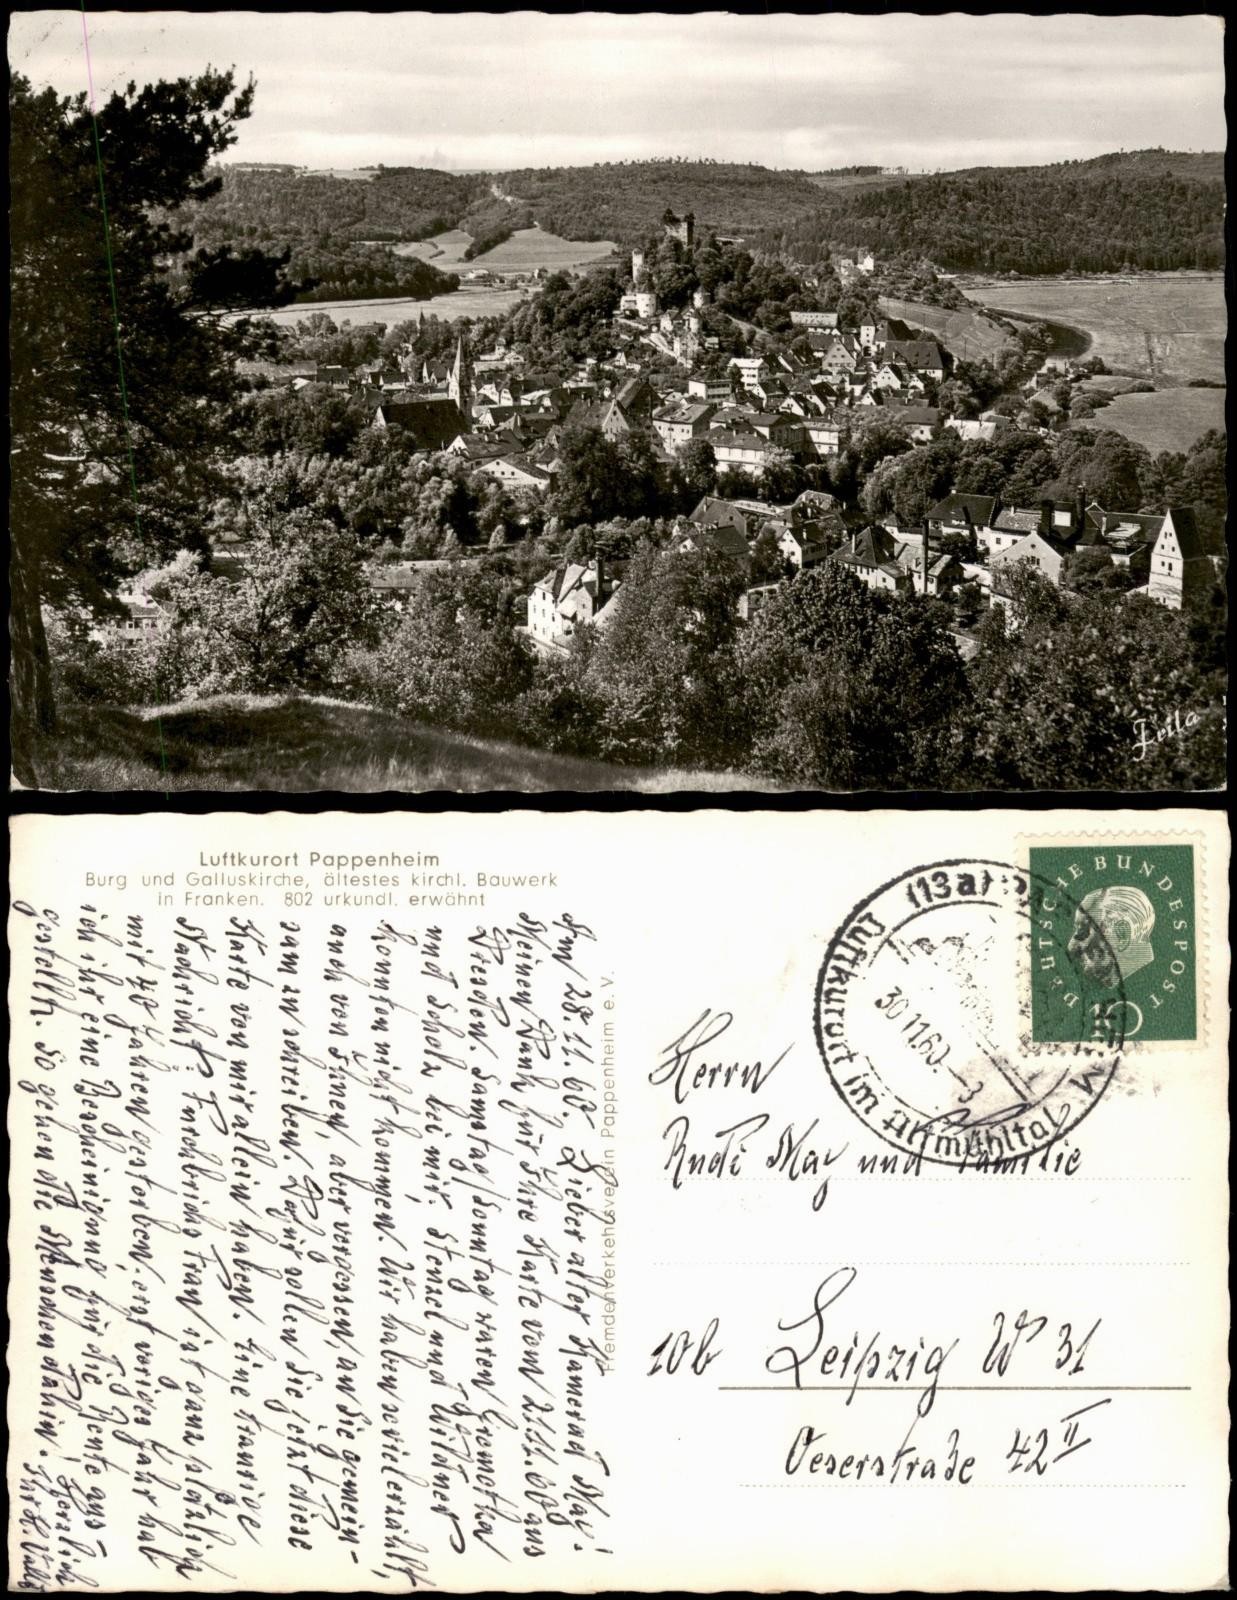 Fella
Luftkurort Pappenheim
Burg und Galluskirche, ältestes kirchl. Bauwerk
in Franken. 802 urkundl. erwähnt
Fremdenverkehrsverein Pappenheim e. V.
Am 28.11.60. Lieber alter Kamerad May!
Meinen Dank für Ihre Karte vom 21.11.60 aus
Dresden. Samstag/Sonntag waren
und Scholz bei mir. Stenzel und Wildner
konnten nicht kommen. Wir haben viel erzählt,
auch von Ihnen, aber vergessen, an Sie gemein-
sam zu schreiben. Dafür sollen Sie jetzt diese
Karte von mir allein haben. Eine traurige
Nachricht: Frau ist ganz plötzlich
mit 40 Jahren gestorben. erst voriges Jahr hab
ich ihr eine Bescheinigung für die Rente aus-
gestellt. So gehen die Menschen dahin. Herzlich
Ihr
(13a)
Luftkurort im Altmühltal
30.11.60-3
DEUTSCHE BUNDESPOST
10
Herrn
Rudi May und Familie
10b Leipzig W 31
Oeserstraße 42 II